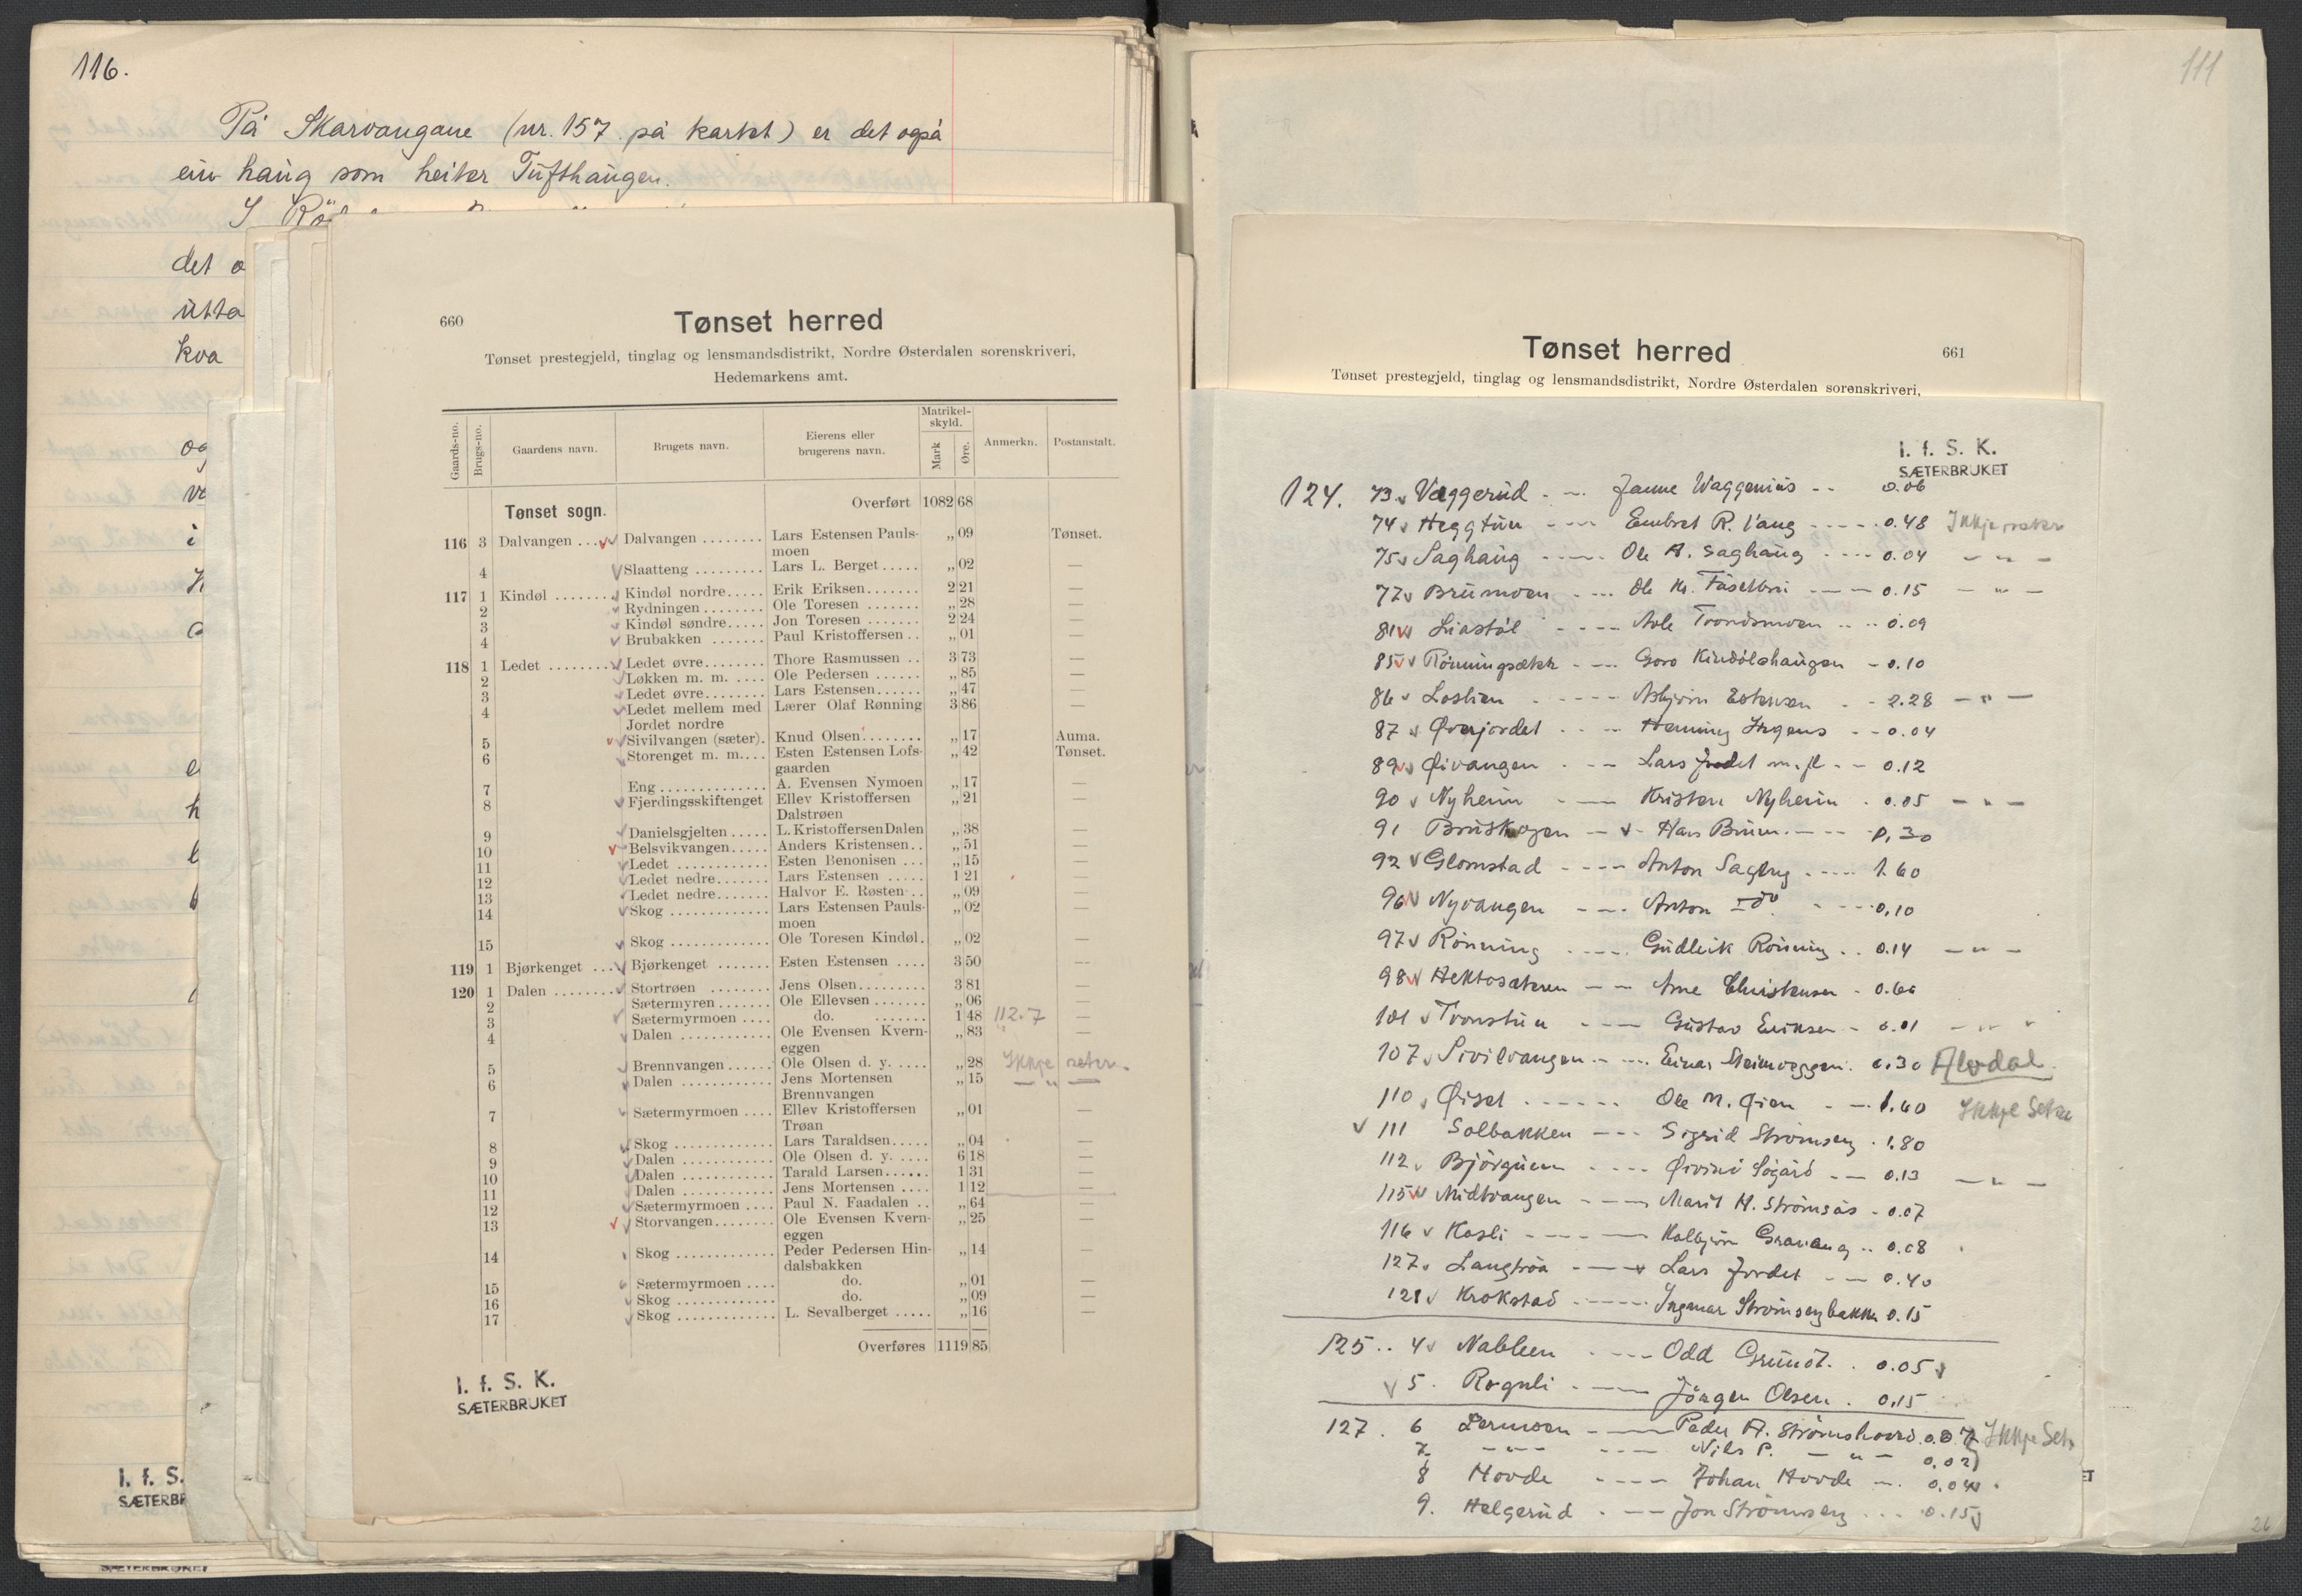 116.
På Skarvangane (nr. 157 på kartet) er det også
ein haug som heiter Tufthaugen.
I
det o
utta
kva
og
i
h
I. f. S.
SÆTERBR
660
Tønset herred
Tønset prestegjeld, tinglag og lensmandsdistrikt, Nordre Østerdalen sorenskriveri,
Hedemarkens amt.
Gaards-no. Brugs-no. Gaardens navn. Brugets navn. Eierens eller brugerens navn. Matrikel-skyld. Mark Øre. Anmerkn. Postanstalt.
Tønset sogn. Overført 1082 68
116 3 Dalvangen ... Dalvangen ........ Lars Estensen Pauls- „ 09 Tønset.
moen
4 Slaatteng ......... Lars L. Berget ..... „ 02 —
117 1 Kindøl ........ Kindøl nordre..... Erik Eriksen....... 2 21 —
2 Rydningen ........ Ole Toresen ....... „ 28 —
3 Kindøl søndre..... Jon Toresen ....... 2 24 —
4 Brubakken ....... Paul Kristoffersen .. „ 01 —
118 1 Ledet ......... Ledet øvre........ Thore Rasmussen .. 3 73 —
2 Løkken m. m. .... Ole Pedersen ...... „ 85 —
3 Ledet øvre........ Lars Estensen...... „ 47 —
4 Ledet mellem med Lærer Olaf Rønning 3 86 —
Jordet nordre
5 Sivilvangen (sæter). Knud Olsen........ „ 17 Auma.
6 Storenget m. m.... Esten Estensen Lofs- „ 42 Tønset.
gaarden
7 Eng .............. A. Evensen Nymoen „ 17 —
8 Fjerdingsskiftenget Ellev Kristoffersen „ 21 —
Dalstrøen
9 Danielsgjelten ..... L. Kristoffersen Dalen „ 38 —
10 Belsvikvangen..... Anders Kristensen.. „ 51 —
11 Ledet ............ Esten Benonisen ... „ 15 —
12 Ledet nedre....... Lars Estensen ..... 1 21 —
13 Ledet nedre....... Halvor E. Røsten .. „ 09 —
14 Skog ............. Lars Estensen Pauls- „ 02 —
moen
15 Skog ............. Ole Toresen Kindøl. „ 02 —
119 1 Bjørkenget ... Bjørkenget ....... Esten Estensen .... 3 50 —
120 1 Dalen ........ Stortrøen ........ Jens Olsen......... 3 81 —
2 Sætermyren ....... Ole Ellevsen ....... „ 06 —
3 Sætermyrmoen .... do. ....... 1 48 112.7 —
4 Dalen ............ Ole Evensen Kvern- „ 83 —
eggen
5 Brennvangen ...... Ole Olsen d. y. .... „ 28 Ikkje seter. —
6 Dalen ............ Jens Mortensen „ 15 — „ — —
Brennvangen
7 Sætermyrmoen .... Ellev Kristoffersen „ 01 —
Trøan
8 Skog ............. Lars Taraldsen..... „ 04 —
9 Dalen ............ Ole Olsen d. y. .... 6 18 —
10 Dalen ............ Tarald Larsen...... 1 31 —
11 Dalen ............ Jens Mortensen .... 1 12 —
12 Sætermyrmoen .... Paul N. Faadalen .. „ 64 —
13 Storvangen........ Ole Evensen Kvern- „ 25 —
eggen
14 Skog ............. Peder Pedersen Hin- „ 14 —
dalsbakken
15 Sætermyrmoen .... do. „ 01 —
16 Skog ............. do. „ 09 —
17 Skog ............. L. Sevalberget ..... „ 16 —
Overføres 1119 85
I. f. S. K.
SÆTERBRUKET
111
Tønset herred 661
Tønset prestegjeld, tinglag og lensmandsdistrikt, Nordre Østerdalen sorenskriveri,
I. f. S. K.
SÆTERBRUKET
124. 73 Vaggerud - - Janne Waggenius - - 0.06
74 Heggtun - - - Embret R. Vang - - - - 0.48 Ikkje seter
75 Saghaug - - - - Ole A. Saghaug - - - - 0.04 - " -
77 Brumoen - - - Ole Kr. Fåsetbru - - - 0.15 - " -
81 Liastøl - - - - Arle Trondsmoen - - - 0.09
85 Rønningsækk - - - Goro Kindølshaugen - 0.10
86 Loslien - - - - - Asbjørn Estensen - - 2.28 - " -
87 Øverjordet - - - Henning Irgens - - 0.04
89 Øivangen - - - Lars Jordet m. fl. - - 0.12
90 Nyheim - - - Kristen Nyheim - 0.05 - " -
91 Bruskogen - - Hans Bruun - - - 0,30
92 Glomstad - - - - Anton Sagbrg - - - - 1.60
96 Nyvangen - - - Anton - do - - - - 0,10
97 Rönning - - - - Gudleik Rönning - - 0.14 - " -
98 Hektosæteren - - - Arne Christensen - 0.66
101 Tronstun - - - Gustav Eriksen - 0.01 - " -
107 Sivilvangen - - - Einar Steimoeggen. 0.30 Alvdal.
110 Øiset - - - - - - Ole M. Øien - - 1.60 Ikkje Seter
111 Solbakken - - - Sigrid Strømseng - 1.80
112 Bjørguen - - - - Øivind Søgård - - 0.13 - " -
115 Midtvangen - - - Marit H. Strømsås - 0.07
116 Kasli - - - - Kolbjørn Gravaug - - 0.08
127 Langtrøa - - - Lars Jordet - - 0.40
128 Krokstad - - - - Ingmar Strømsengbakken 0.15
125. . 4 Nabben - - - Odd Grundt. . 0.05
5. Rognli - - - Jörgen Olsen. 0,15
127. 6 Lermoen - - - Peder A. Strømshoved. 0.07 Ikkje Set
7 - " - - - - - Nils P. - " - 0,02
8 Hovde - - - - Johan Hovde - - 0,04
9. Helgerud - - - Jon Strømseng - - - 0.15
26